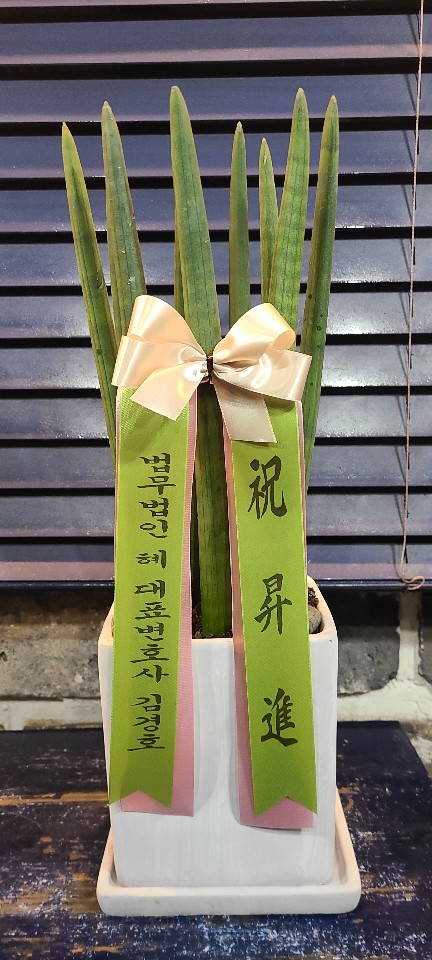 법무법인 혜 대표변호사 김경호
祝昇進